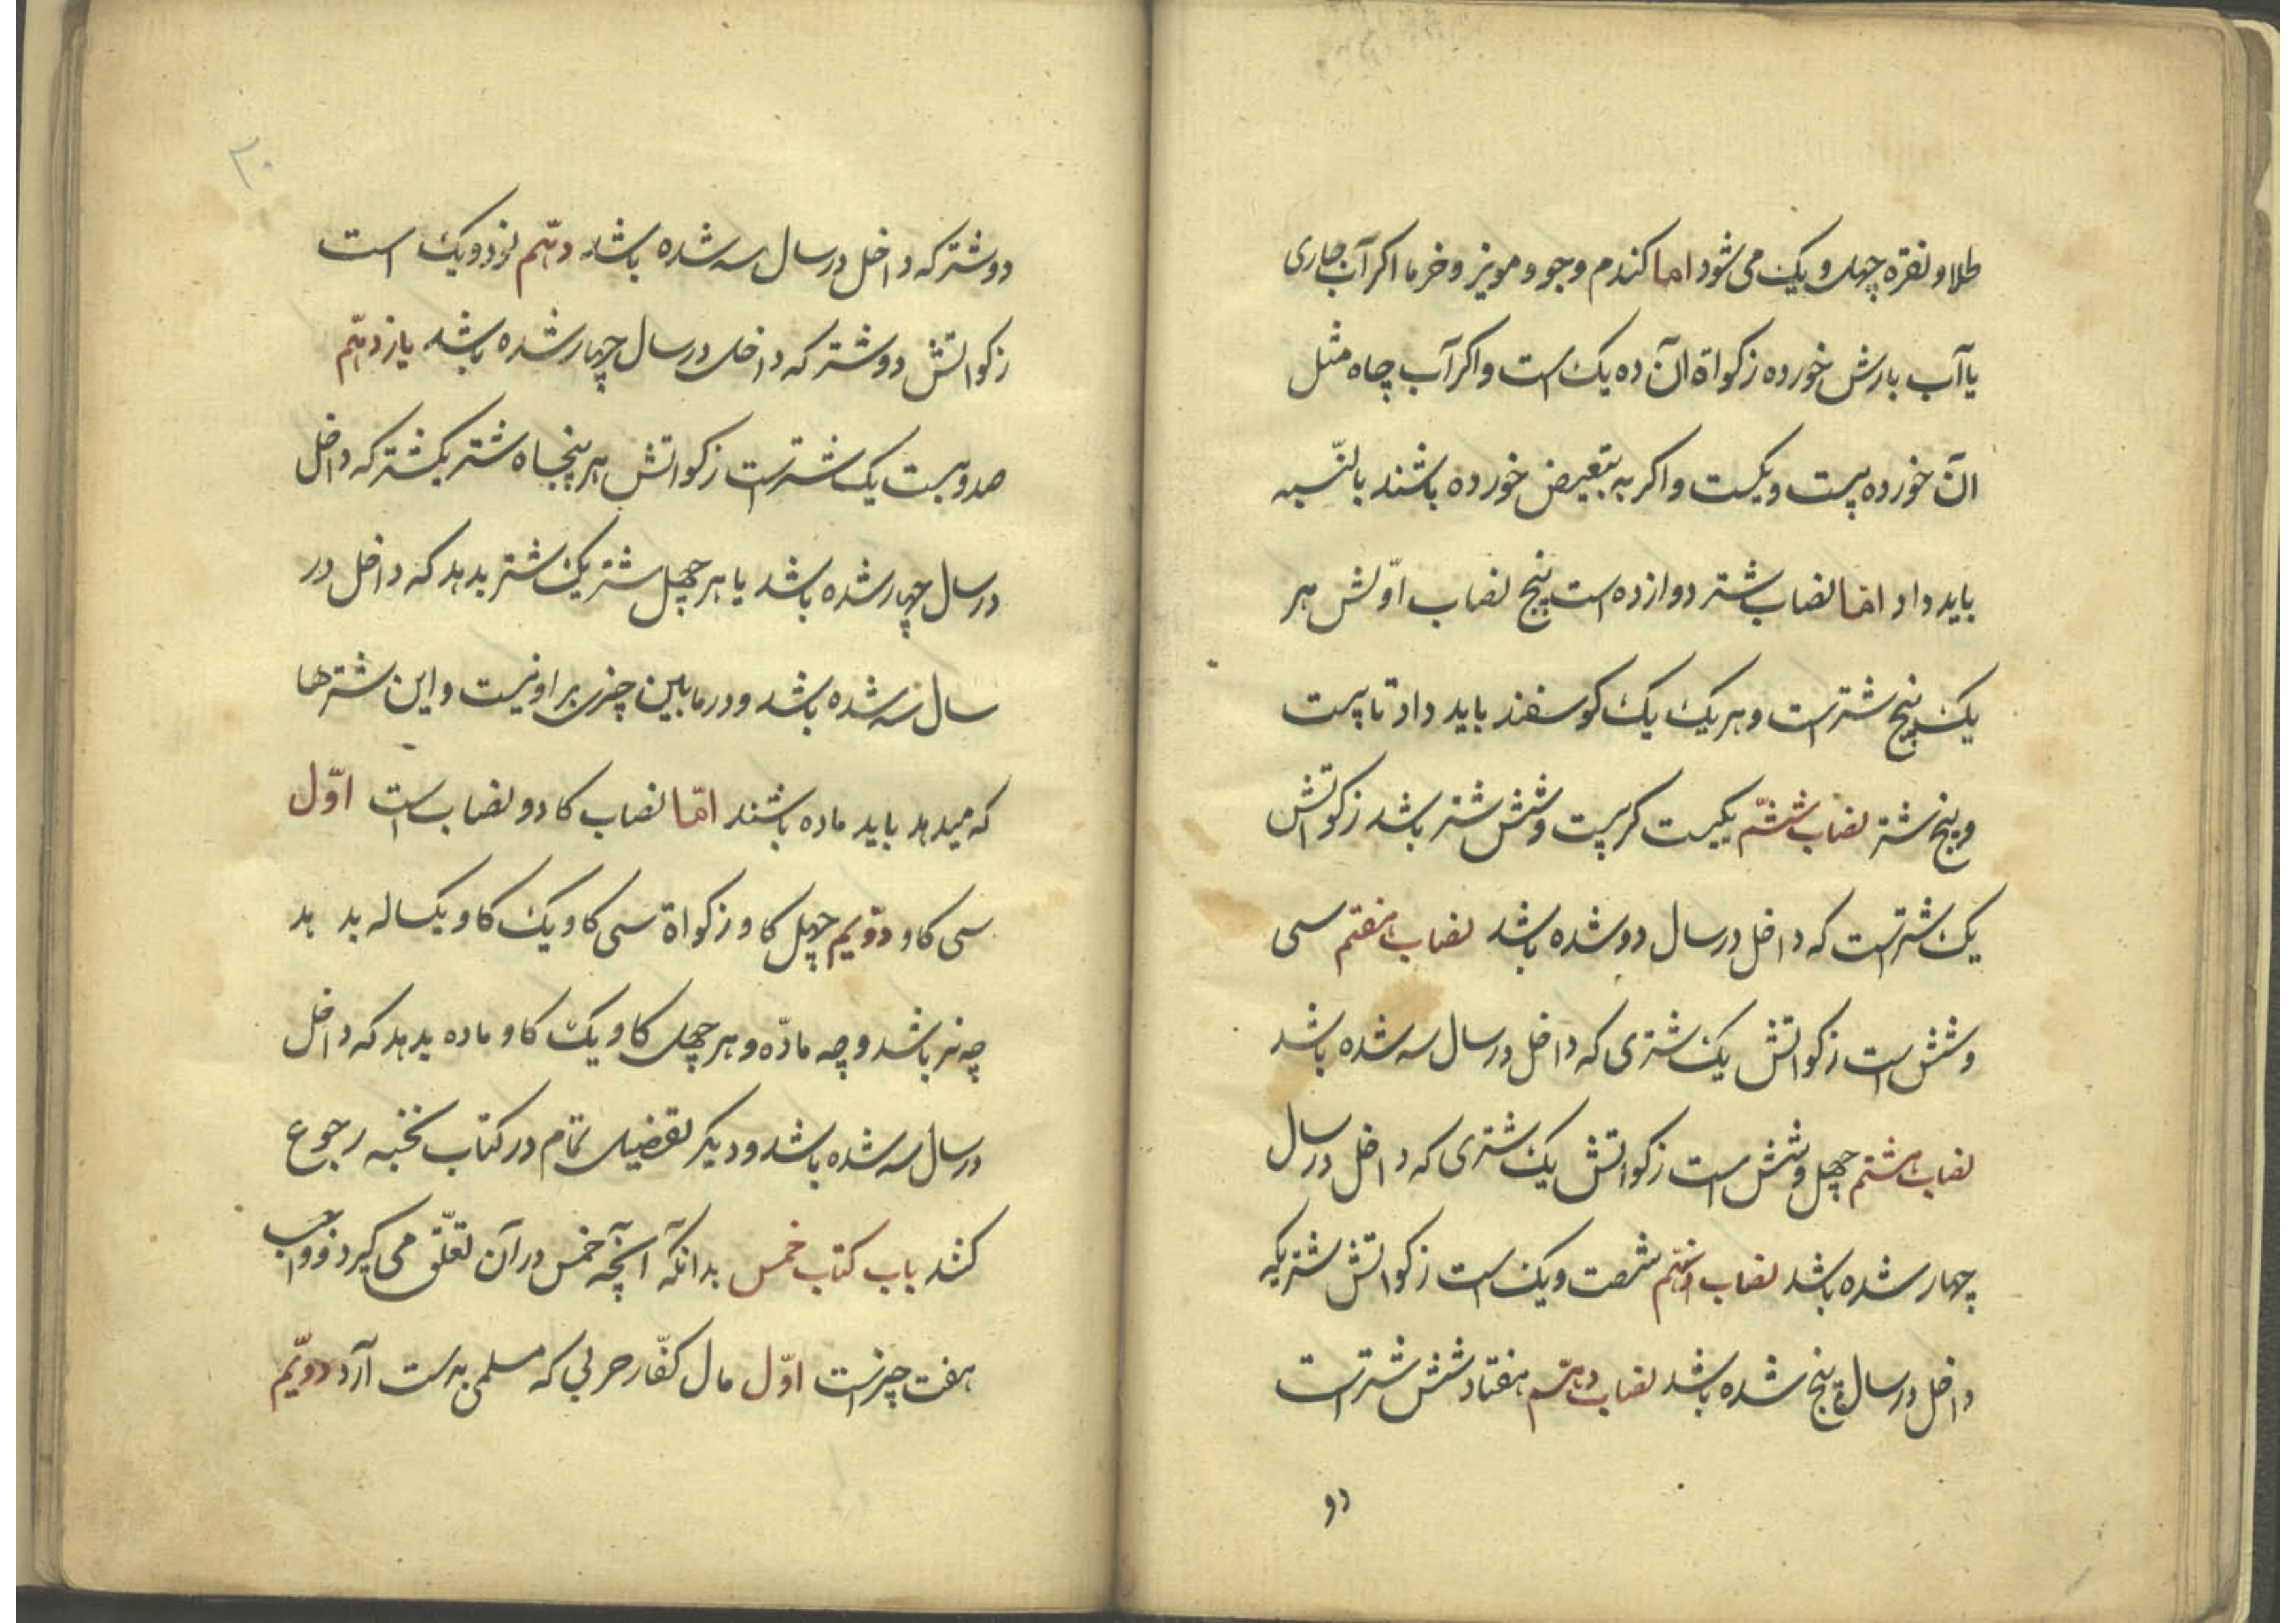 طلا و نقره چهل و یک می شود اما کندم و جو و مویز و خرما اکر آب جاری
یا آب بارش خورده زکواة ان ده یک است و اکر آب چاه مثل
ان خورده بیست و یکست و اکر به تبعیض خورده باشند بالنّسبه
باید داد امّا نصاب شتر دوازده است پنج نصاب اوّلش هر
یک پنج شتر است و هر یک یک کوسفند باید داد تا بیست
و پنج شتر نصاب ششم یکیست کر بیست و شش شتر باشد زکوتش
یک شتر است که داخل در سال دو شده باشد نصاب هفتم سی
و شش است زکواتش یک شتری که داخل در سال سه شده باشد
نصاب هشتم چهل و شش است زکواتش یک شتری که داخل در سال
چهار شده باشد نصاب نهم شصت و یک است زکواتش شتریکه
داخل در سال پنج شده باشد نصاب دهم هفتاد شش شتر است
دو
۳۰
دو شتر که داخل در سال سه شده باشد دهم نود و یک است
زکواتش دو شتر که داخل در سال چهار شده باشد یازدهم
صد و بیست یک شتر است زکواتش هر پنجاه شتر یکشتر که داخل
در سال چهار شده باشد یا هر چهل شتر یک شتر بدهد که داخل در
سال سه شده باشد و در مابین چیزی بر او نیست و این شترها
که میدهد باید ماده باشند امّا نصاب کا دو نصاب است اوّل
سی کاو دوّیم چهل کاو زکواة سی کاو یک کاو یکساله بد هد
چه نر باشد و چه مادّه و هر چهل کاو یک کاو ماده بدهد که داخل
در سال سه شده باشد و دیکر تفصیل تمام در کتاب نخبه رجوع
کنند باب کتاب خمس بدانکه آنچه خمس در آن تعلّق می کیرد و واجب
هفت چیز است اوّل مال کفّار حربی که مسلمی بدست آرد دوّیم